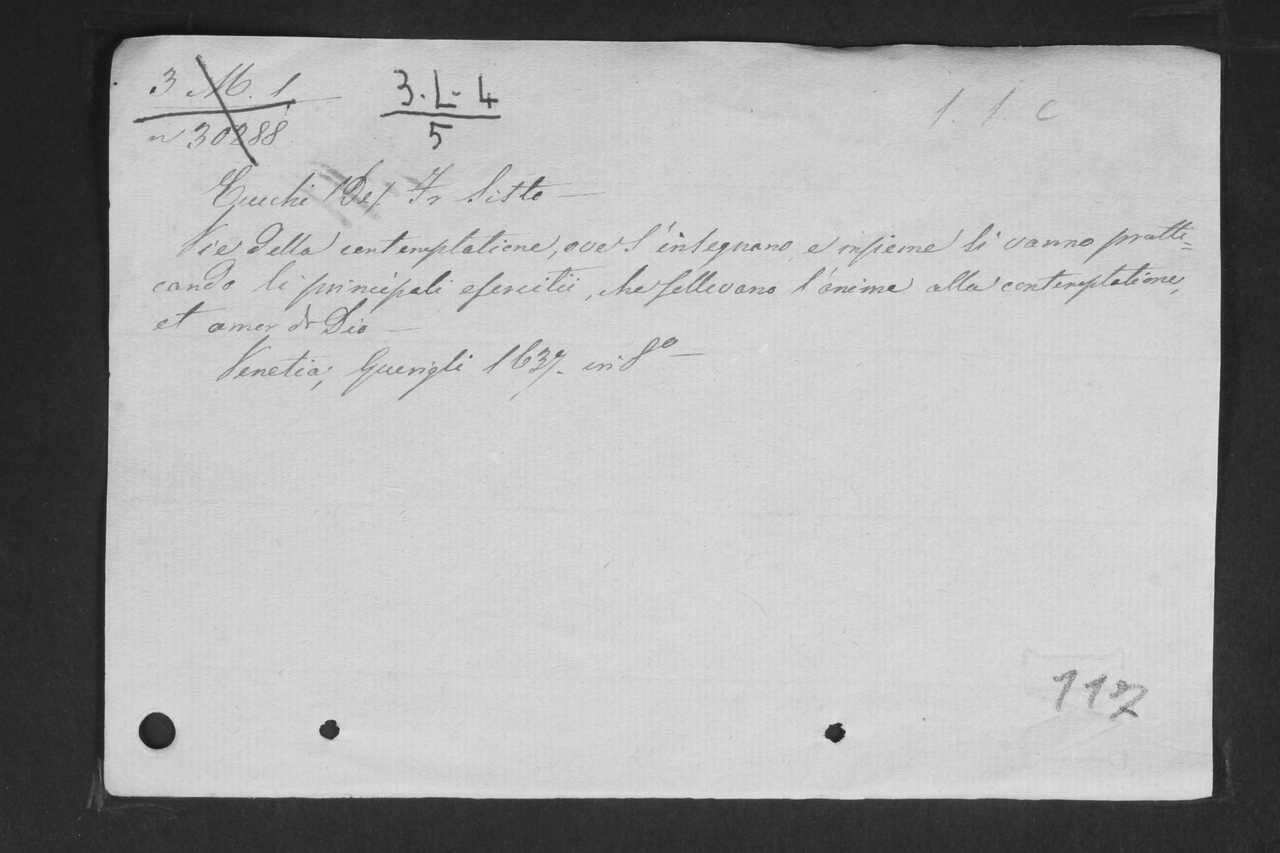 3 M. 1
n 30288
3·L·4
5
1. 1. C
Cucchi (De) Fr Sisto —
Vie della contemplatione, ove s'insegnano, e insieme si vanno pratti=
cando li principali esercitii, che sollevano l'anime alla contemplatione,
et amor di Dio —
Venetia, Guerigli 1637. in 8º —
117